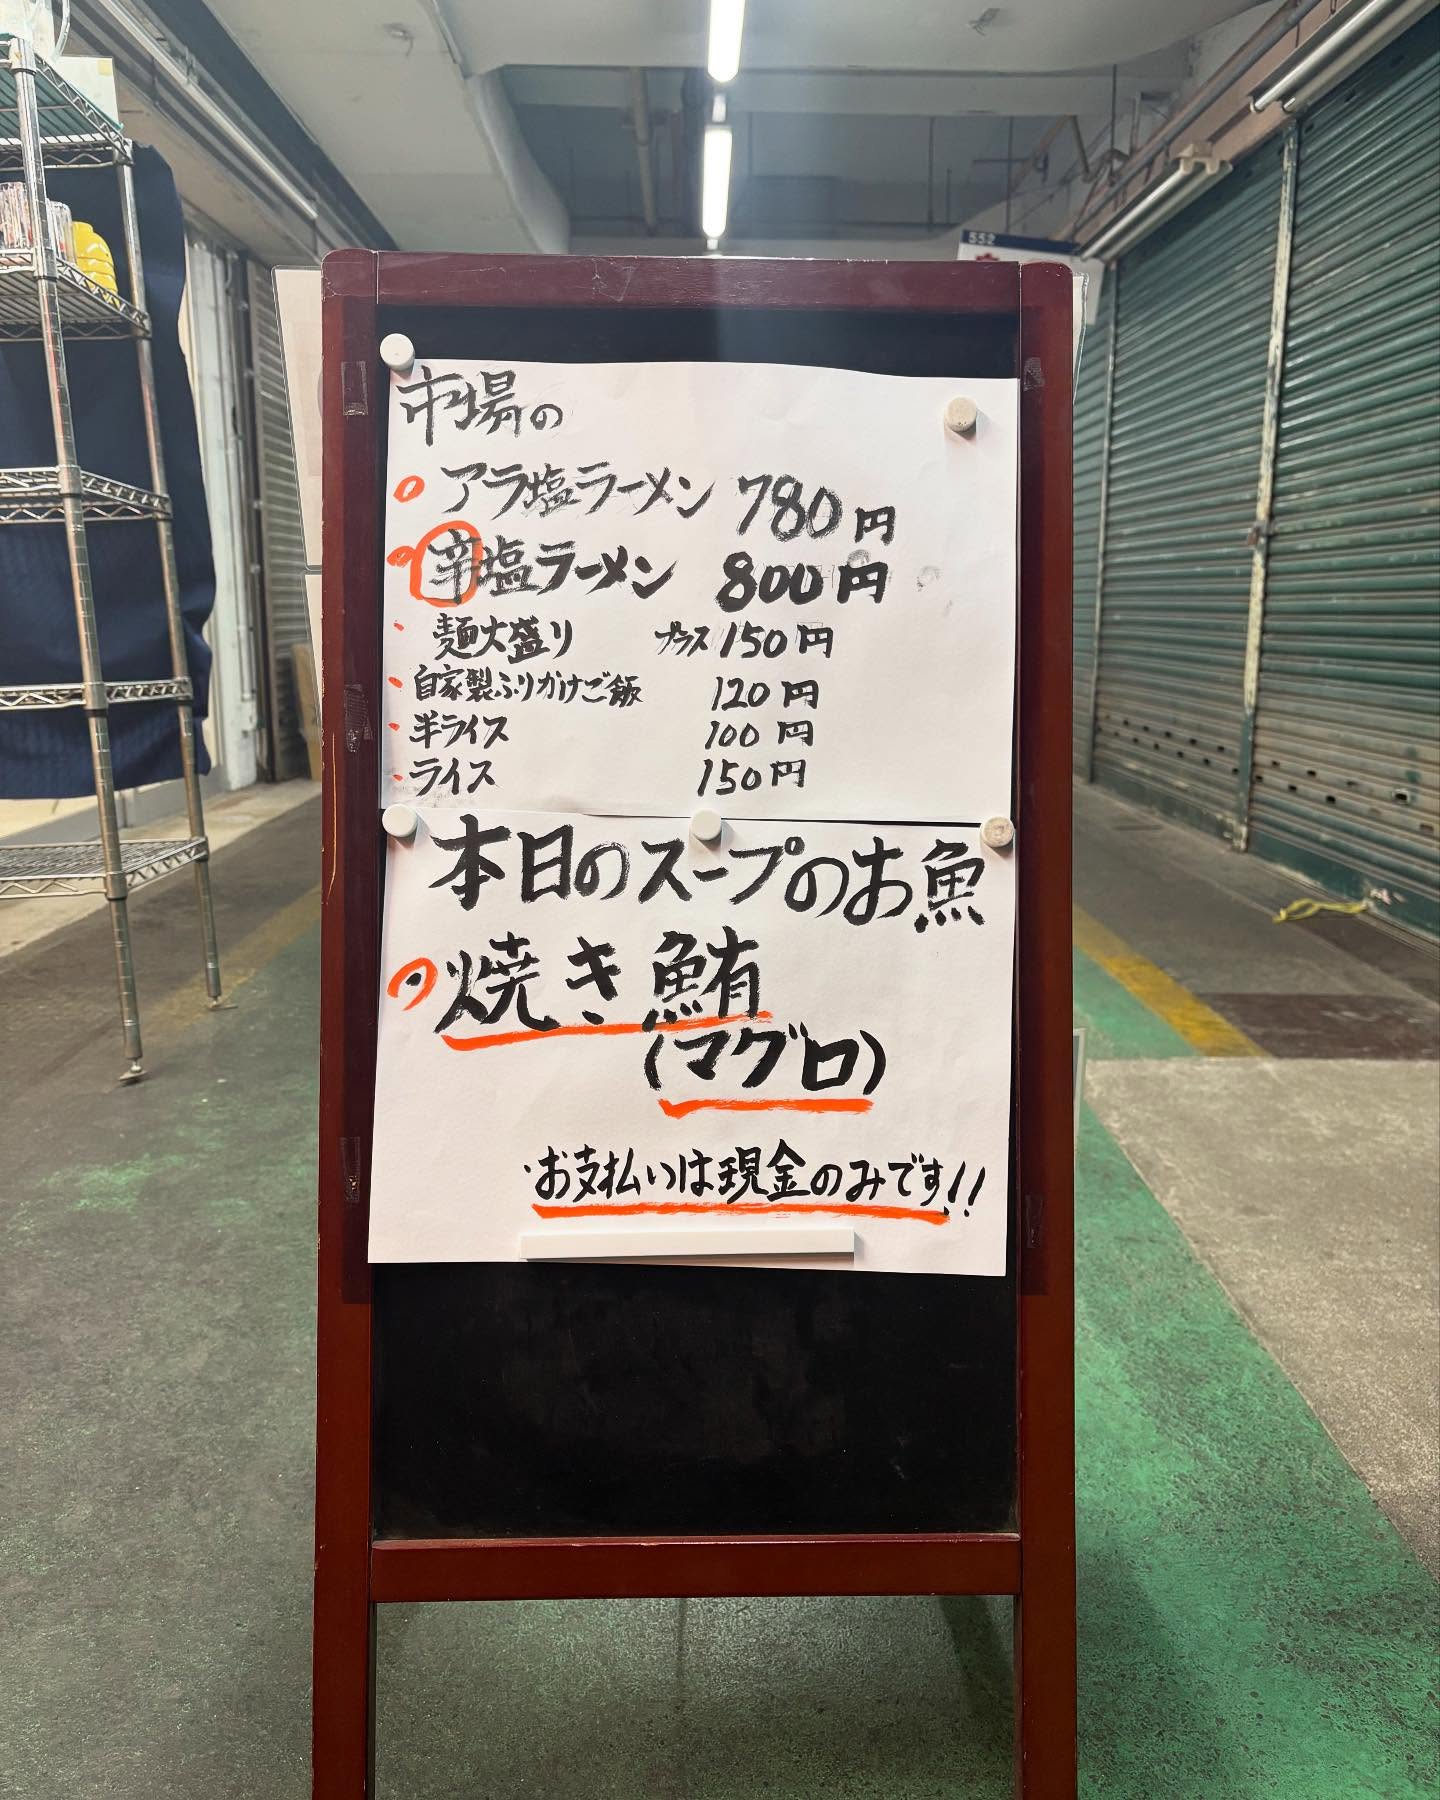 552
市場の
アラ塩ラーメン 780円
辛塩ラーメン 800円
・麺大盛り プラス150円
・自家製ふりかけご飯 120円
・半ライス 100円
・ライス 150円
本日のスープのお魚
焼き鮪
(マグロ)
・お支払いは現金のみです!!